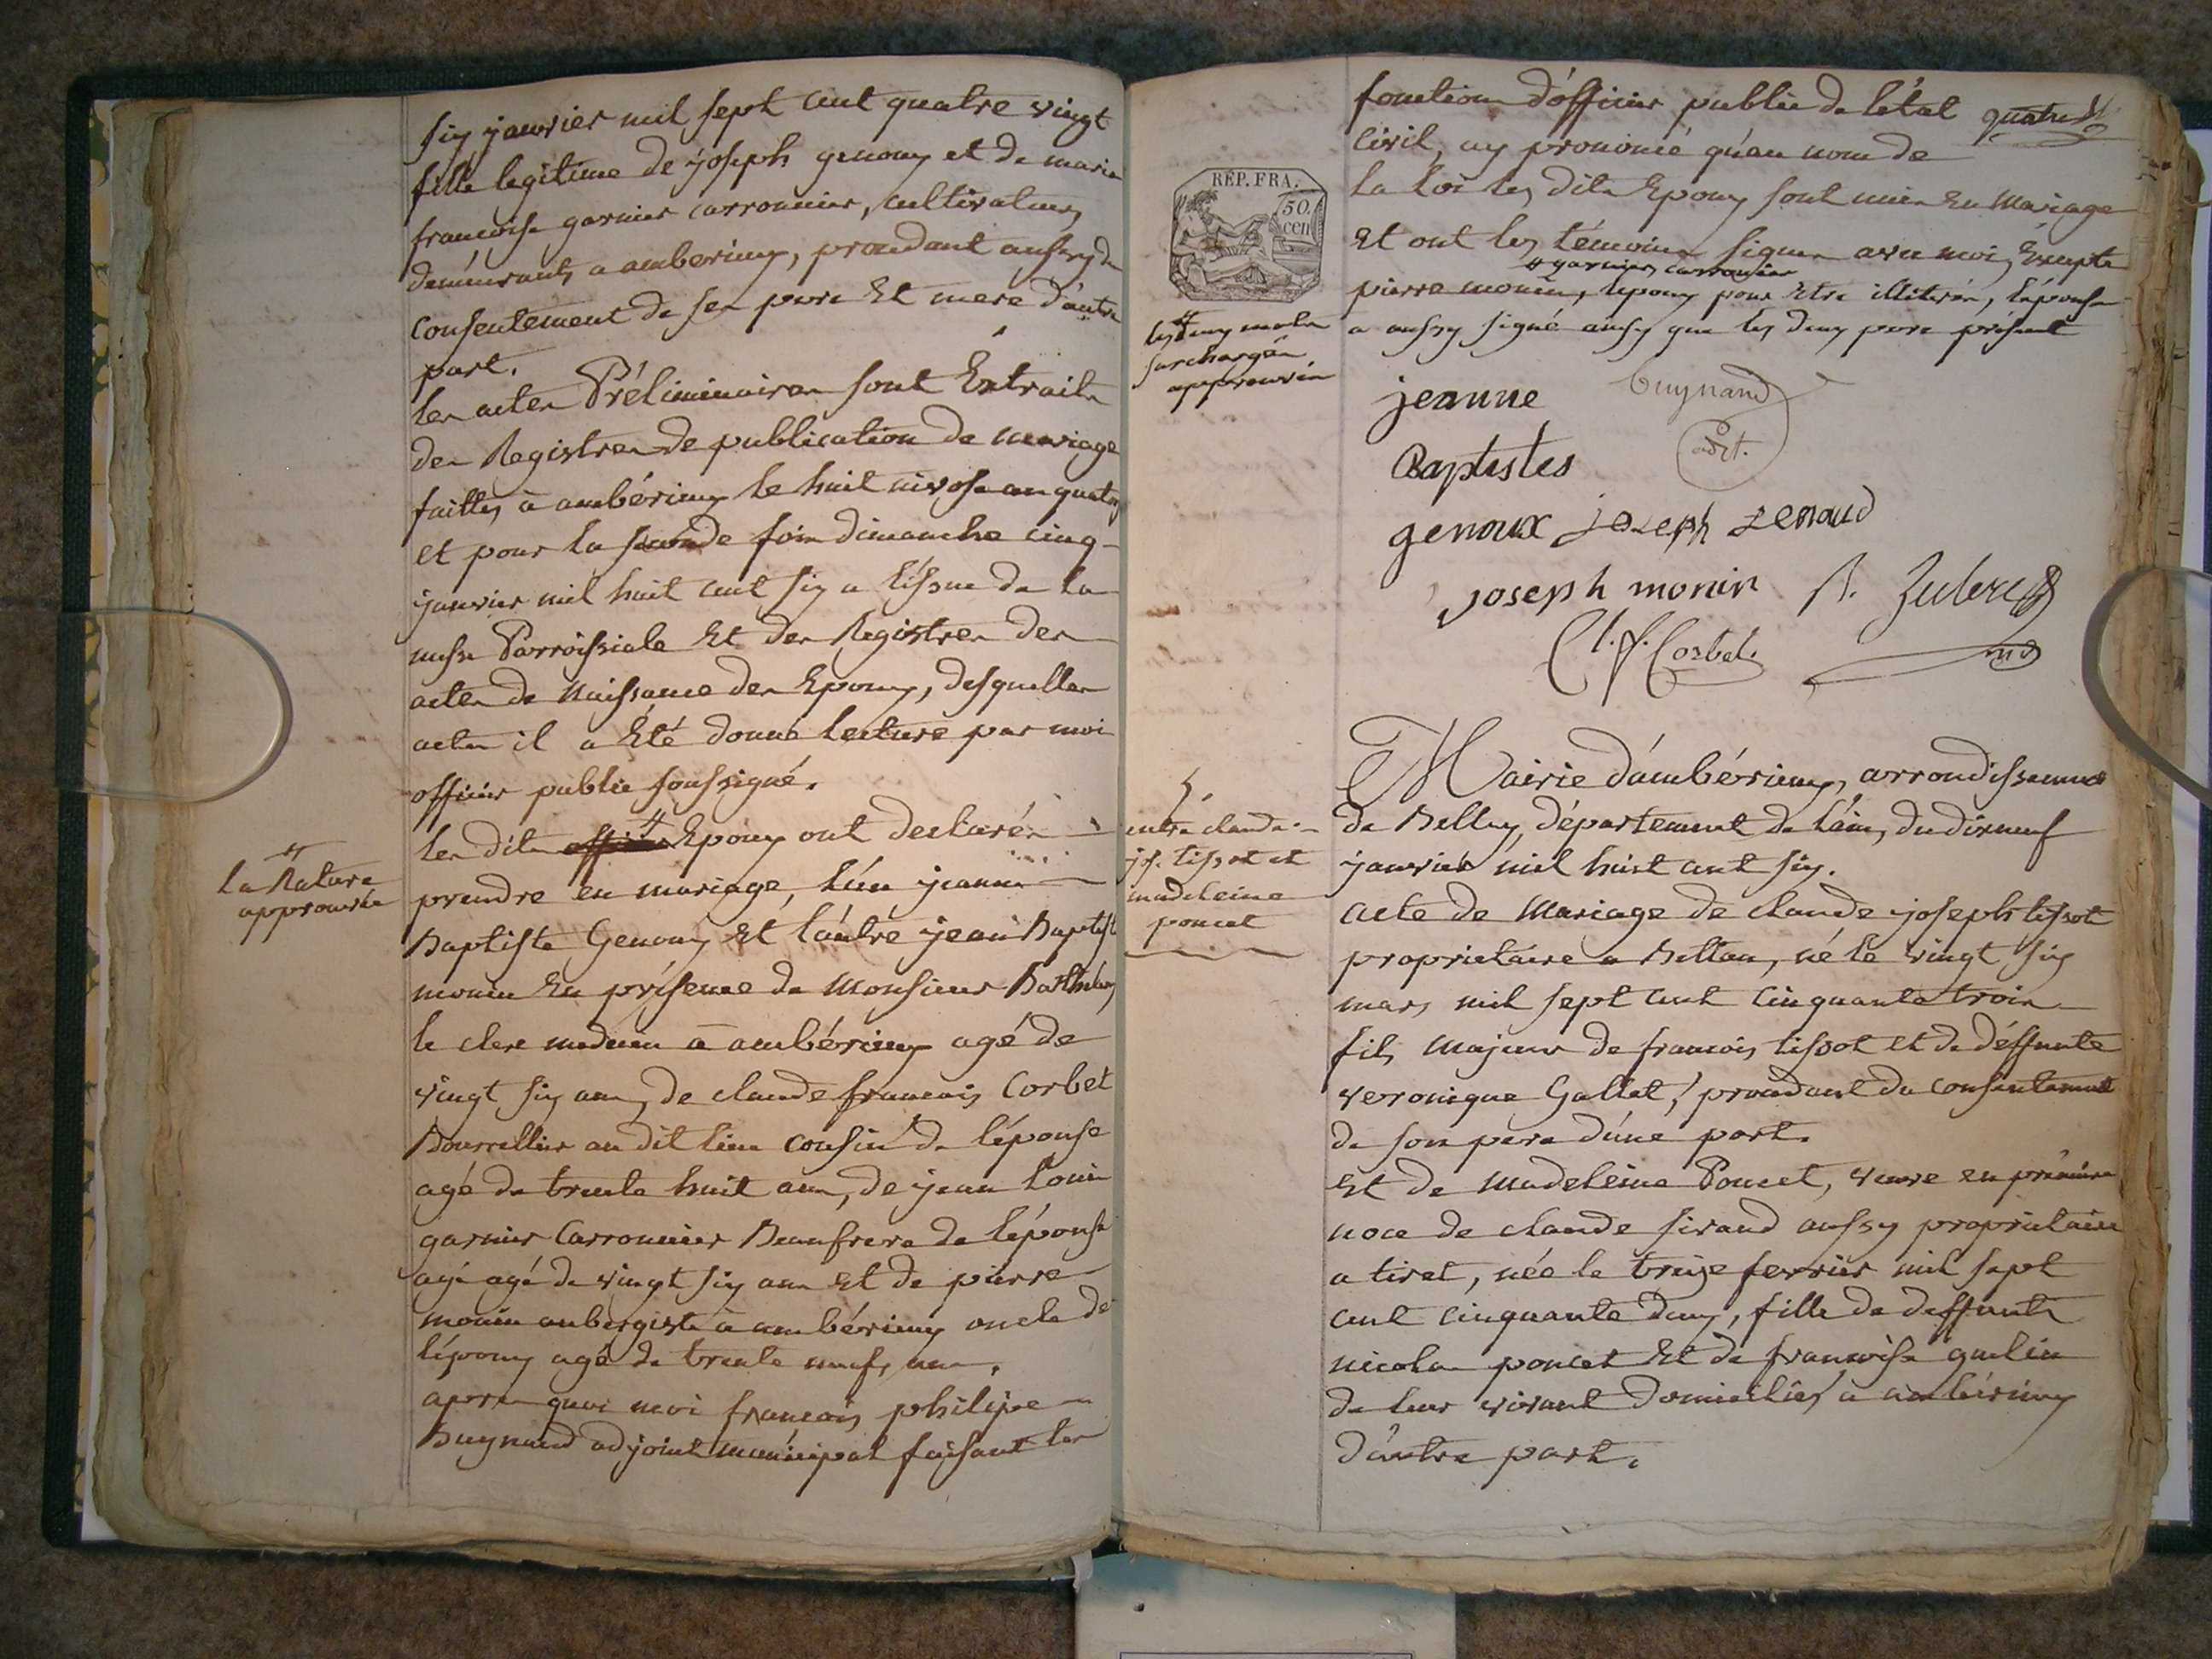 six janvier mil sept cent quatre vingt
fille legitime de joseph genoux et de marie
francoise garnier carronnier, cultivateurs
demeurants a amberieux, procedant aussy du
consentement de ses pere Et mere d'autre
part.
les actes Préliminaires sont Extraits
des Registres de publication de mariage
faittes à ambérieux le huit nivose an quatorze
et pour la seconde fois dimanche cinq
janvier mil huit cent six a l'issue de la
messe Parroissiale Et des Registres des
actes de Naissance des Epoux, desquelles
actes il a Été donné lecture par moi
officier public soussigné.
les dits Epoux ont declarés
la Rature
approuvée
prendre en mariage, l'un jeanne
Baptiste Genoux Et l'autre jean Baptiste
monin En présence de Monsieur Barthelemy
le clerc medecin à ambérieux agé de
vingt six ans, de claude francois Corbet
Bourrellier au dit lieu cousin de l'épouse
agé de trente huit ans, de jean Louis
garnier Carronnier Beaufrere de l'épouse
agé agé de vingt six ans Et de pierre
monin aubergiste à ambérieux oncle de
l'époux agé de trente neuf ans.
apres quoi moi francois philipe
Buynand adjoint municipal faisant les
fonctions d'officier public de l'état
quatre
Civil, ay prononcé qu'au nom de
la Loi les dits Epoux sont unis En Mariage
Et ont les témoins signes avec moi, Excepte
# garnier carronnier
pierre monin, l'epoux pour Etre illiterés, l'épouse
a aussy signé ainsy que les deux pere présent
REP. FRA.
50.
cen
#
les deux mots
surchargés
approuvés
jeanne
Buynand
adjt.
Baptistes
genoux joseph Zenoud
joseph monin
Cl. f. Corbet
Mairie d'ambérieux, arrondissement
de Belley, département de l'ain, du dixneuf
janvier mil huit cent six.
entre claude
jos. tissot et
madeleine
poncet
acte de Mariage de claude joseph tissot
proprietaire a Bettan, né le vingt six
mars mil sept cent cinquante trois
fils majeur de francois tissot et de déffunte
veronique Gallet, procedant du consentement
de son pere d'une part.
Et de Madeleine Poncet, veuve en premiere
noce de claude sirand aussy proprietaire
a tiret, née le treize fevrier mil sept
cent cinquante deux, fille de deffunts
nicolas poncet Et de francoise guelin
de leur vivant domiciliés à ambérieux
d'autre part.